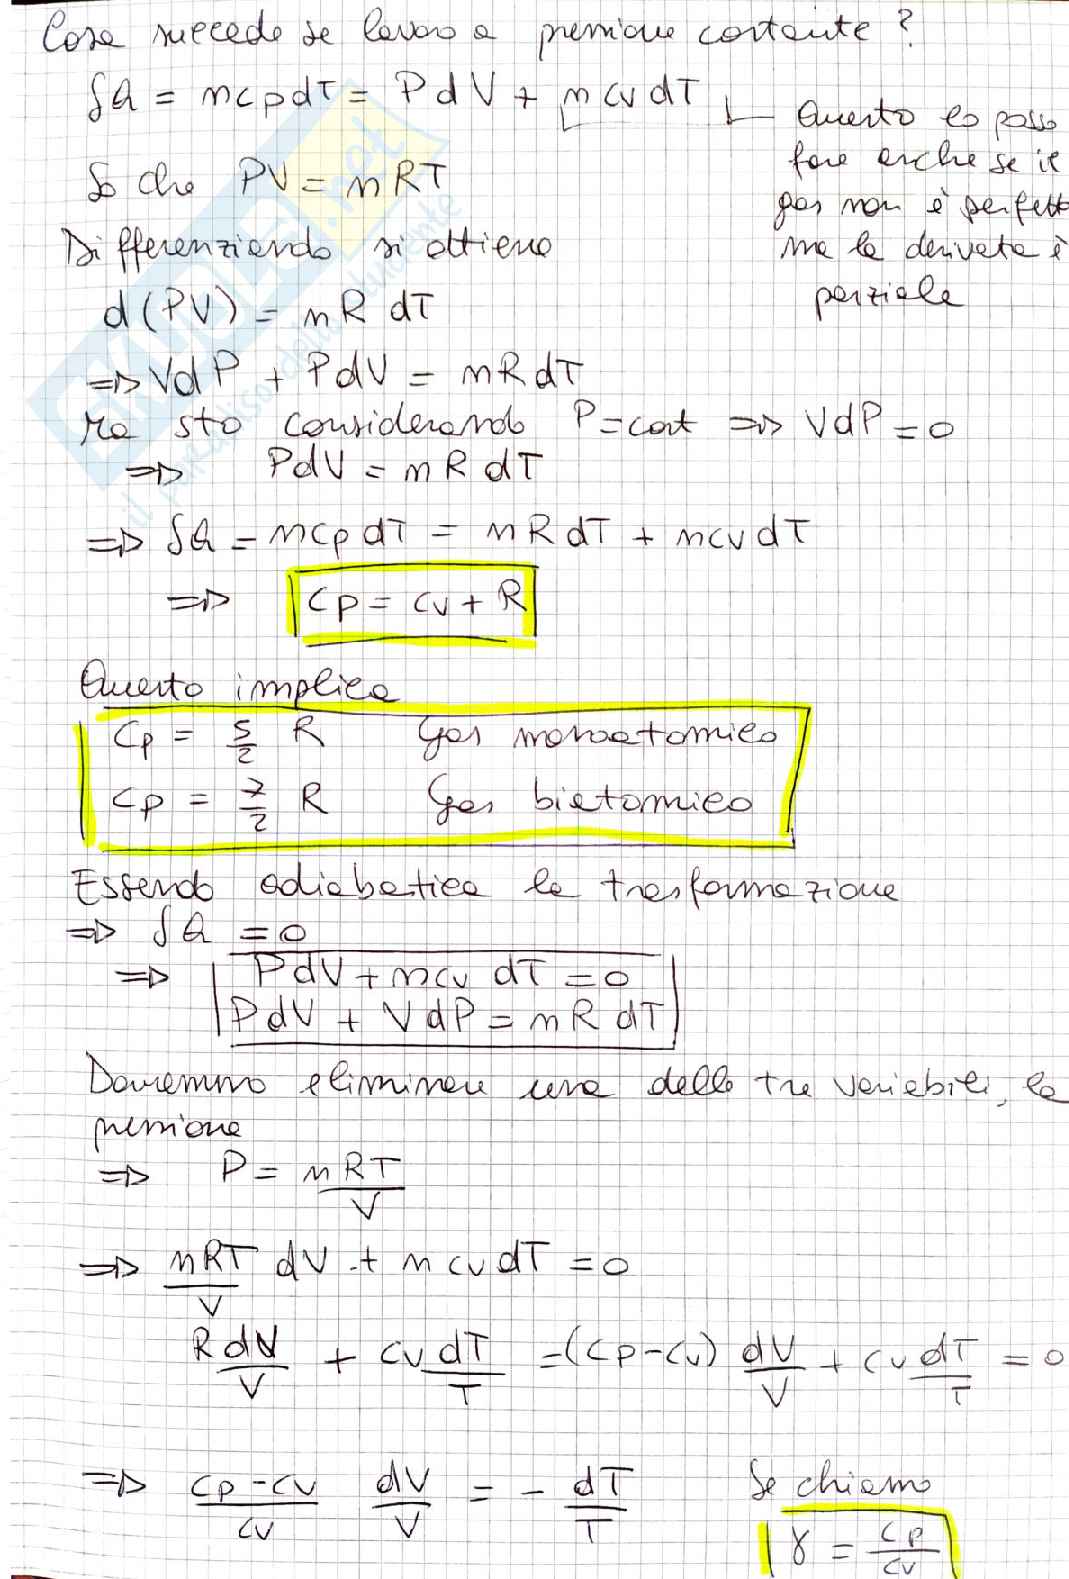 Cosa succede se lavoro a pressione costante?
δQ = ncpdT = PdV + ncvdT
Questo lo posso
fare anche se il
gas non è perfett
ma la derivata è
parziale
So che PV = nRT
Differenziando si ottiene
d(PV) = nR dT
=> VdP + PdV = nRdT
Ma sto considerando P=cost => VdP = 0
=> PdV = nR dT
=> δQ = ncpdT = nRdT + ncvdT
=> cp = cv + R
Questo implica
cp = 5/2 R Gas monoatomico
cp = 7/2 R Gas biatomico
Essendo adiabatica la trasformazione
=> δQ = 0
=> PdV + ncv dT = 0
PdV + VdP = nR dT
Dovremmo eliminare una delle tre variabili, la
pressione
=> P = nRT/V
=> nRT/V dV + ncvdT = 0
R dV/V + cv dT/T = (cp-cv) dV/V + cv dT/T = 0
=> cp-cv/cv dV/V = - dT/T
Se chiamo
γ = cp/cv
SKUOLA.net
il paradiso dello studente